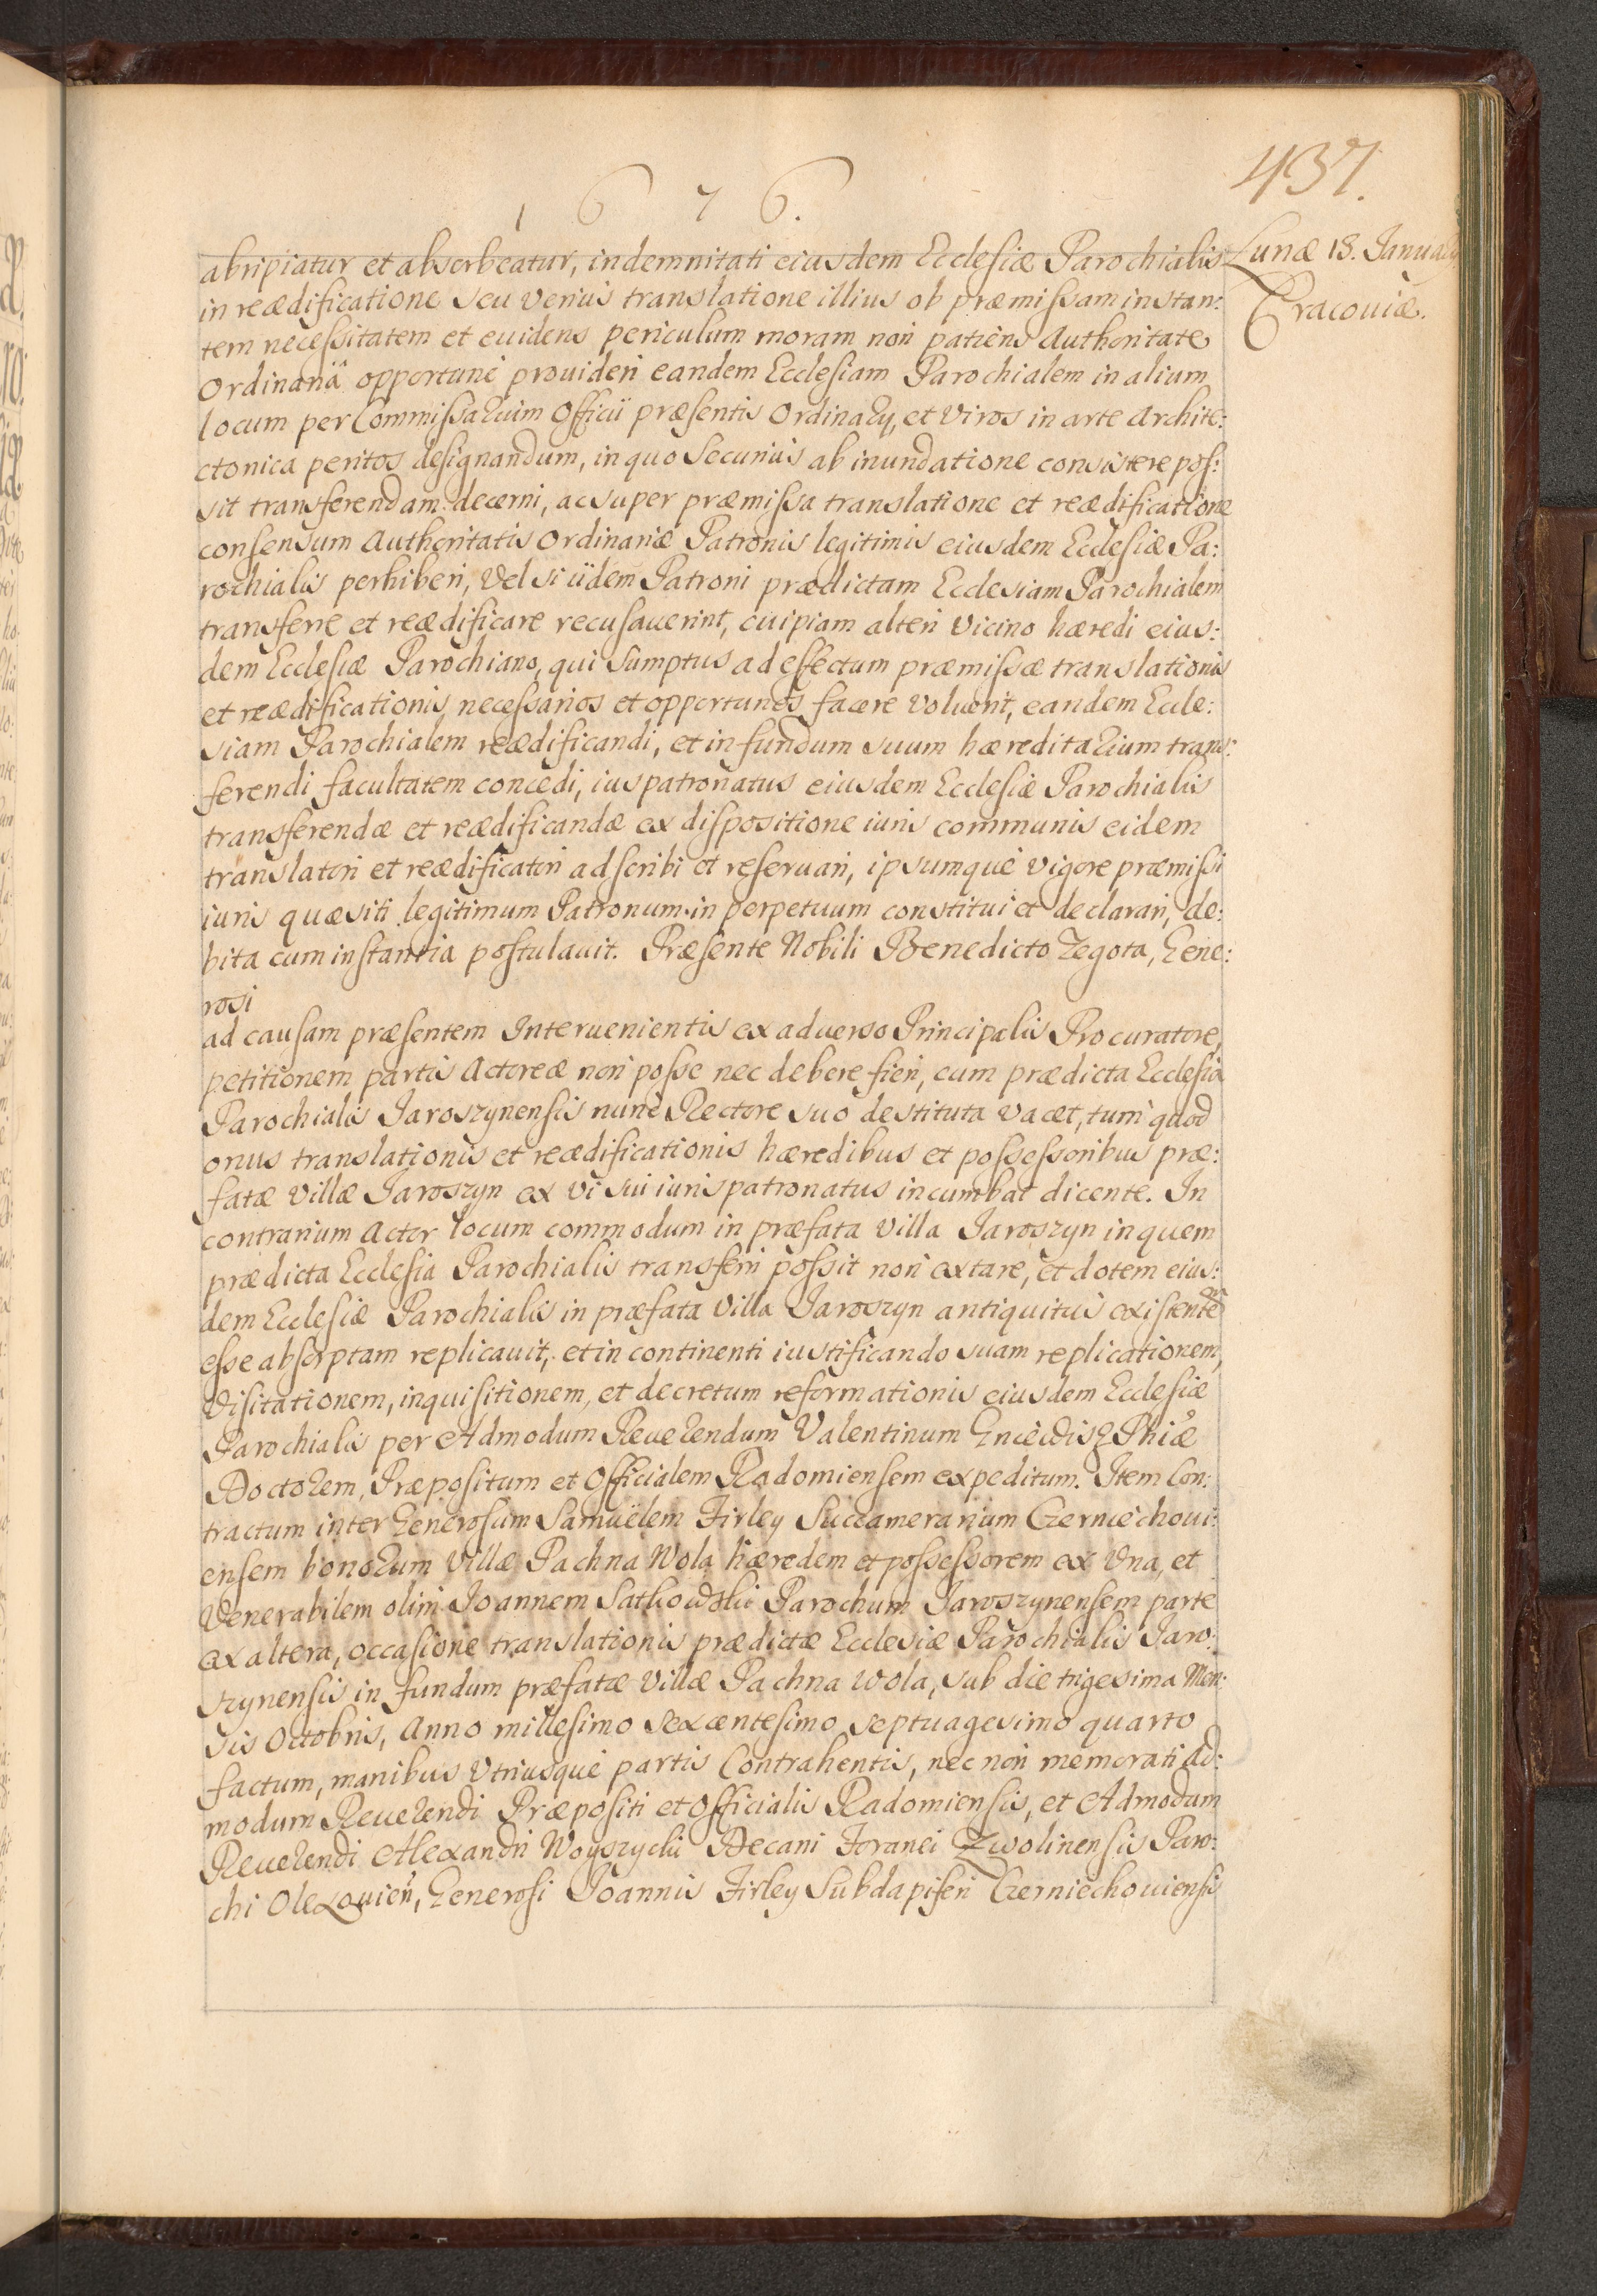 437.
1676.
Lunæ 18. January
Cracouiæ.
abripiatur et absorbeatur, indemnitati eiusdem Ecclesiæ Parochialis
in reædificatione seu verius translatione illius ob præmissam instan:
tem necessitatem et euidens periculum moram non patiens Authoritate
Ordinariâ opportunè prouideri eandem Ecclesiam Parochialem in alium
locum per Commissarium Officii præsentis Ordinarÿ, et Viros in arte Archite:
ctonica peritos designandum, in quo securius ab inundatione consistere pos:
sit transferendam decerni, ac super præmissa translatione et reædificatione
consensum Authoritatis Ordinariæ Patronis legitimis eiusdem Ecclesiæ Pa:
rochialis perhiberi, Vel si iidem Patroni prædictam Ecclesiam Parochialem
transferre et reædificare recusauerint, cuipiam alteri Vicino hæredi eius:
dem Ecclesiæ Parochiano, qui sumptus ad effectum præmissæ translationis
et reædificationis necessarios et opportunos facere Voluerit, eandem Eccle:
siam Parochialem reædificandi, et in fundum suum hæreditarium trans:
ferendi facultatem concedi, ius patronatus eiusdem Ecclesiæ Parochialis
transferendæ et reædificandæ ex dispositione iuris communis eidem
translatori et reædificatori adscribi et reseruari, ipsumquè vigore præmissi
iuris quæsiti legitimum Patronum in perpetuum constitui et declarari, de:
bita cum instantia postulauit. Præsente Nobili Benedicto Zegota, Gene:
rosi
ad causam præsentem Interuenientis ex aduerso Principalis Procuratore,
petitionem partis Actoreæ non posse nec debere fieri, cum prædicta Ecclesia
Parochialis Jaroszynensis nunc Rectore suo destituta vacet, tum quod
onus translationis et reædificationis hæredibus et possessoribus præ:
fatæ Villæ Jaroszyn ex vi sui iuris patronatus incumbat dicente. In
contrarium Actor locum commodum in præfata Villa Jaroszyn in quem
prædicta Ecclesia Parochialis transferri possit non extare, et dotem eius:
dem Ecclesiæ Parochialis in præfata Villa Jaroszyn antiquitus existentem
esse absorptam replicauit, et in continenti iustificando suam replicationem,
Visitationem, inquisitionem, et decretum reformationis eiusdem Ecclesiæ
Parochialis per Admodum Reuerendum Valentinum Phiæ
Doctorem, Præpositum et Officialem Radomiensem expeditum. Item Con:
tractum inter Generosum Samuëlem Firley Succamerarium Czerniechoui:
ensem bonorum Villæ Pachna Wola hæredem et possessorem ex Vna, et
Venerabilem olim Joannem Satkowski Parochum Jaroszynensem parte
ex altera, occasione translationis prædictæ Ecclesiæ Parochialis Jaro:
szynensis in fundum præfatæ Villæ Pachna Wola, sub die trigesima Men:
sis Octobris, Anno millesimo sexcentesimo septuagesimo quarto
factum, manibus Vtriusquè partis Contrahentis, nec non memorati Ad:
modum Reuerendi Præpositi et Officialis Radomiensis, et Admodum
Reuerendi Alexandri Woyszycki Decani Foranei Zwolinensis Paro:
chi Olexouien, Generosi Joannis Firley Subdapiferi Czerniechouiensis